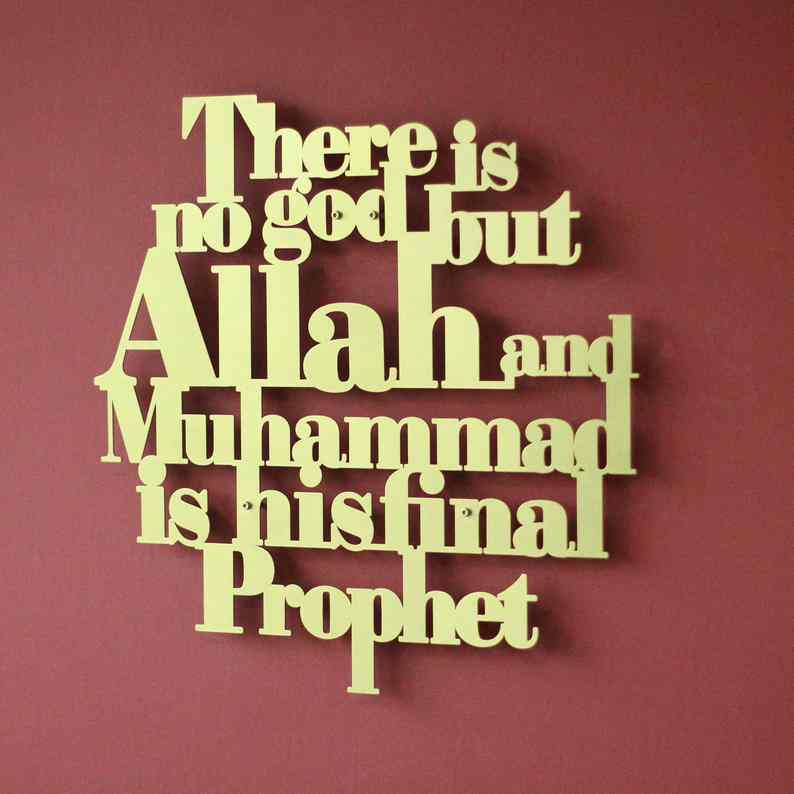 There is
no god but
Allah and
Muhammad
is his final
Prophet